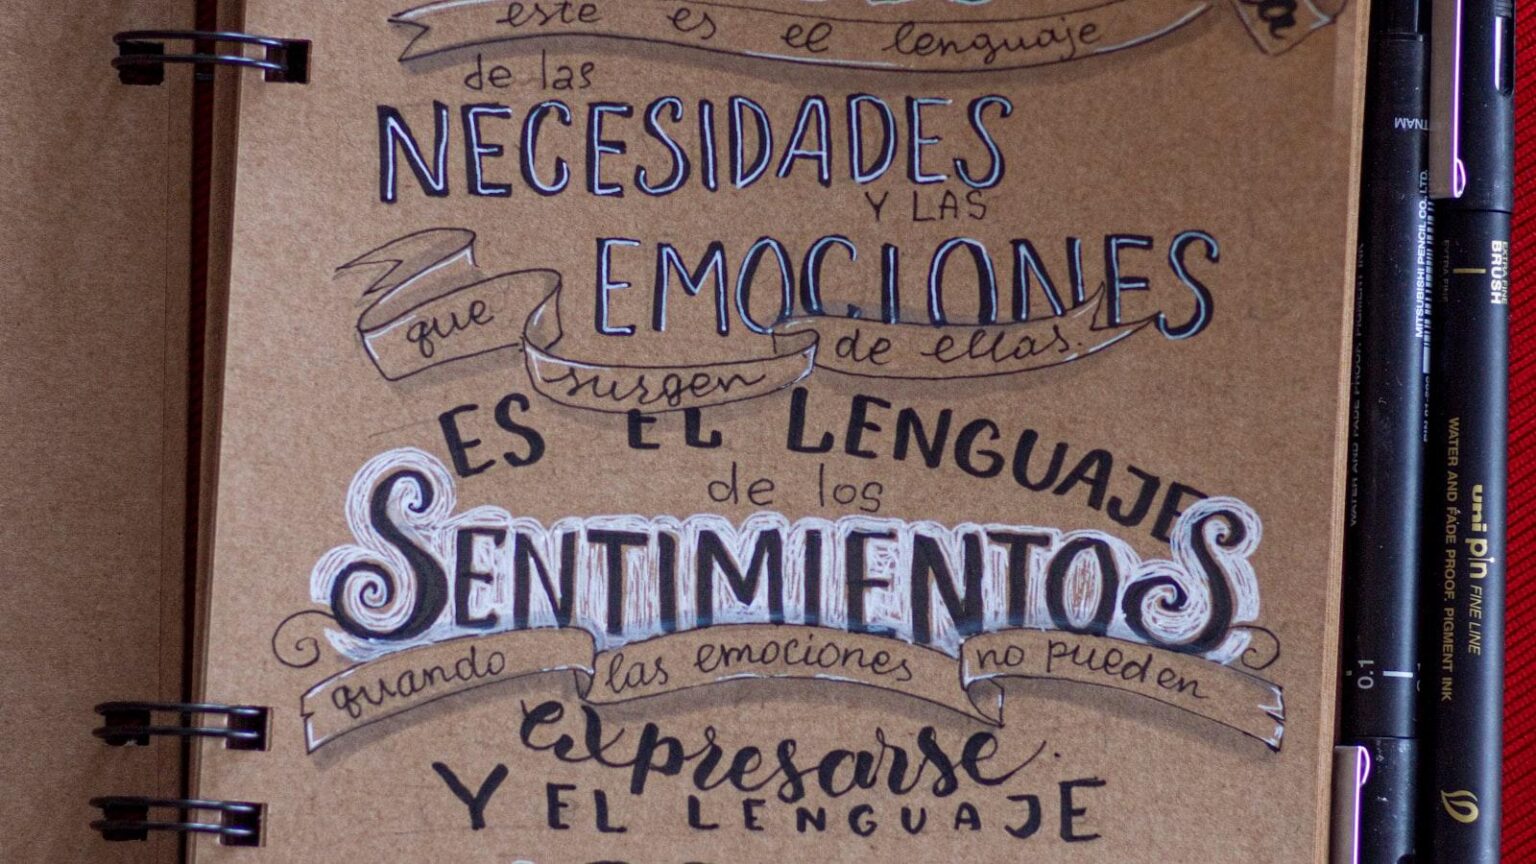 este es el lenguaje
de las
NECESIDADES
Y LAS
EMOCIONES
que surgen de ellas.
ES EL LENGUAJE
de los
SENTIMIENTOS
quando las emociones no pueden
expresarse.
Y EL LENGUAJE
MITSUBISHI PENCIL CO., LTD.
0.1
EXTRA FINE
BRUSH
uni pin FINE LINE
WATER AND FADE PROOF, PIGMENT INK